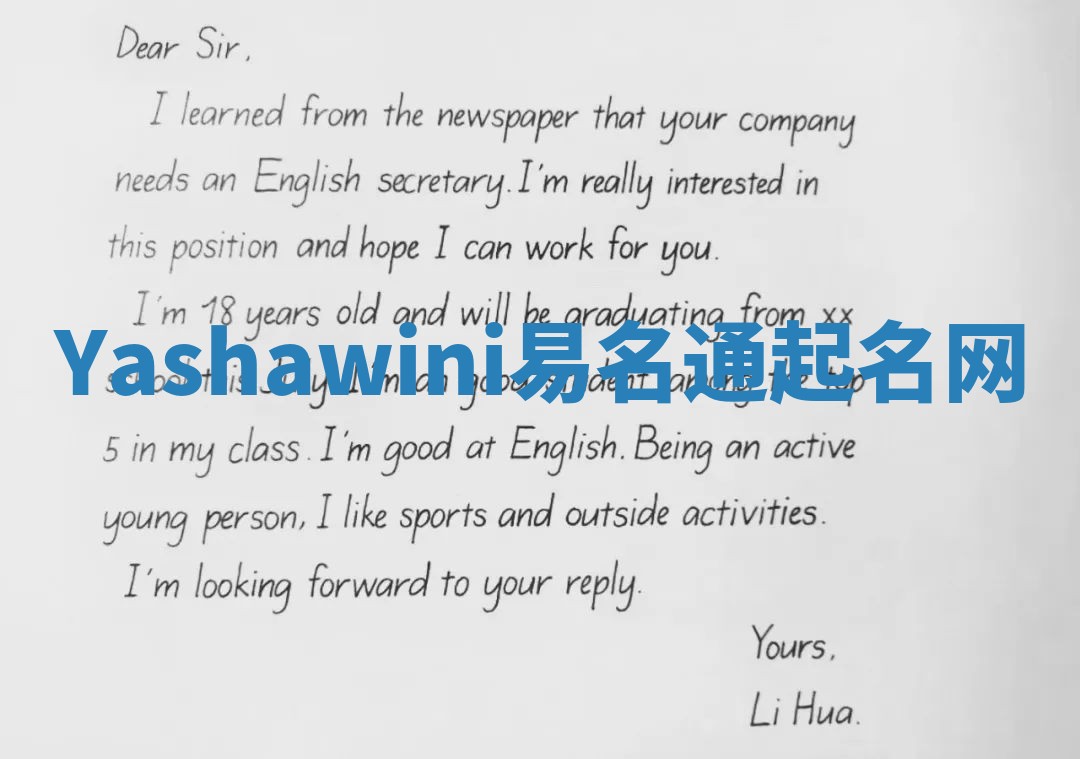 Dear Sir,
I learned from the newspaper that your company
needs an English secretary. I'm really interested in
this position and hope I can work for you.
I'm 18 years old and will be graduating from xx
Yashawini易名通起名网
5 in my class. I'm good at English. Being an active
young person, I like sports and outside activities.
I'm looking forward to your reply.
Yours,
Li Hua.